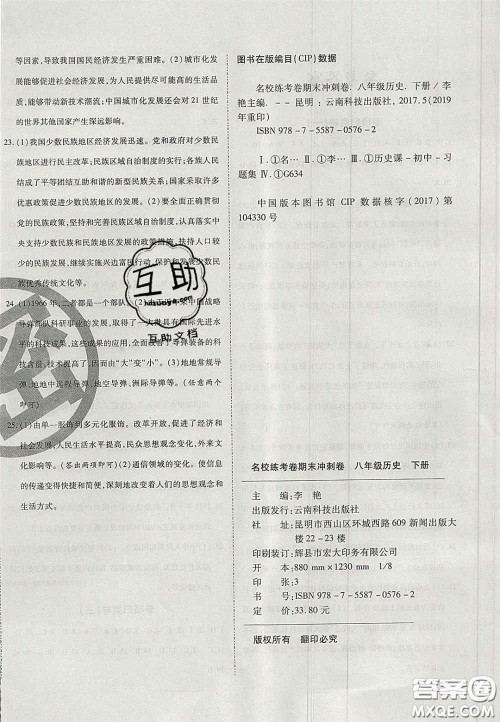 等因素，导致我国国民经济发展产生严重困难。(2)城市化发
展能够促进社会经济发展，为人民提供更高质量的生活品质，
能够带动新技术潮流；中国城市化发展还会对 21 世纪
的世界其他国家产生深远影响。
23.(1)我国少数民族地区经济发展迅速。党和政府对少数民
族地区进行民主改革；民族区域自治制度的实行；各族人民
结成了平等团结互助和谐的新型民族关系；国家采取许多
优惠政策促进少数民族地区的发展。(2)必须实行民族区域
自治政策，坚持和完善民族区域自治制度，认真落实中
央支持少数民族和民族地区发展的政策措施，扶持人口较
少的民族发展，继续实施兴边富民行动，保护和发展少数民
族优秀传统文化等。
24.(1)1966年，二者都是一个部队。
导弹部队科研事业的发展，取得了一大批具有国际先进水
平的科技成果，提高了
技含量，提高了核威慑力，因而由“大”变“小”。(3)地地常规导
弹、地地中远程导弹、洲际导弹等。(任意两个
即可)
25.(1)由单一服饰到多元化服饰。改革开放，促进了经济和
社会发展；人民生活水平提高，民众思想观念变化，外来文
化影响等。(答出两项即可)(2)通信领域的变化，使信息
的传递变得快捷和高效，深刻地改变着人们的思想观念和
生活方式。
图书在版编目(CIP)数据
名校练考卷期末冲刺卷. 八年级历史. 下册 / 李
艳主编. -- 昆明：云南科技出版社，2017.5(2019
年重印)
ISBN 978－7－5587－0576－2
Ⅰ.①名… Ⅱ.①李… Ⅲ.①历史课－初中－习
题集 Ⅳ.①G634
中国版本图书馆 CIP 数据核字(2017)第
104330 号
互助
互助文档
名校练考卷期末冲刺卷 八年级历史 下册
主 编：李 艳
出版发行：云南科技出版社
社 址：昆明市西山区环城西路 609 新闻出版大
楼 22－23 楼
印刷装订：辉县市宏大印务有限公司
开 本：880 mm×1230 mm 1/8
印 张：3
书 号：ISBN 978－7－5587－0576－2
定 价：33.80 元
版权所有 翻印必究
答案圈
MXQE.COM